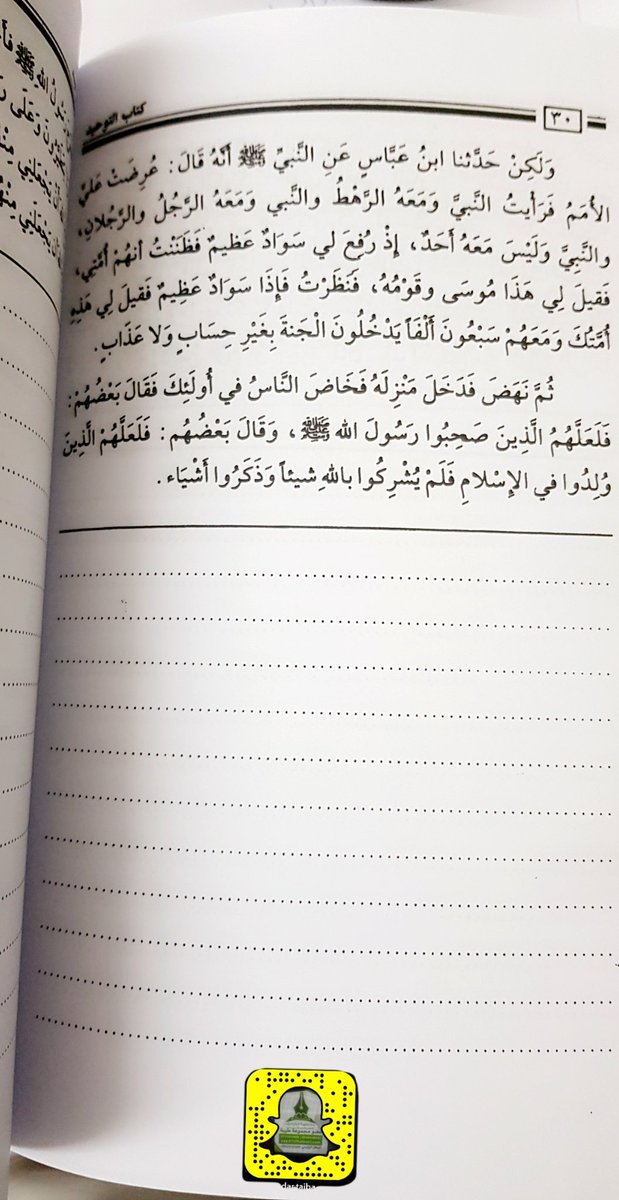 ٣٠
كتاب التوحيد
وَلَكِنْ حَدَّثنا ابنُ عَبَّاسٍ عَنِ النَّبيِّ ﷺ أَنَّهُ قَالَ: عُرِضَتْ عَليَّ
الأُمَمُ فَرَأَيتُ النَّبيَّ وَمَعَهُ الرَّهْطُ والنَّبي وَمَعَهُ الرَّجُلُ والرَّجُلانِ،
والنَّبِيَّ وَلَيْسَ مَعَهُ أَحَدٌ، إِذْ رُفِعَ لي سَوَادٌ عَظيمٌ فَظَنَنْتُ أنهُمْ أُمَّتِي،
فَقيلَ لِي هَذَا مُوسَى وقَوْمُهُ، فَنَظَرْتُ فَإِذَا سَوَادٌ عَظِيمٌ فَقيلَ لِي هَذِهِ
أُمَّتُكَ وَمَعَهُمْ سَبْعُونَ أَلْفَاً يَدْخُلُونَ الْجَنةَ بِغَيرِ حِسَابٍ وَلا عَذَابٍ.
ثُمَّ نَهَضَ فَدَخَلَ مَنْزِلَهُ فَخَاضَ النَّاسُ في أُولَئِكَ فَقَالَ بَعْضُهُمْ:
فَلَعَلَّهُمُ الَّذِينَ صَحِبُوا رَسُولَ الله ﷺ، وَقَالَ بَعْضُهُم: فَلَعَلَّهُمْ الَّذِينَ
وُلِدُوا في الإِسْلامِ فَلَمْ يُشْرِكُوا باللهِ شيئاً وَذَكَرُوا أَشْيَاء.